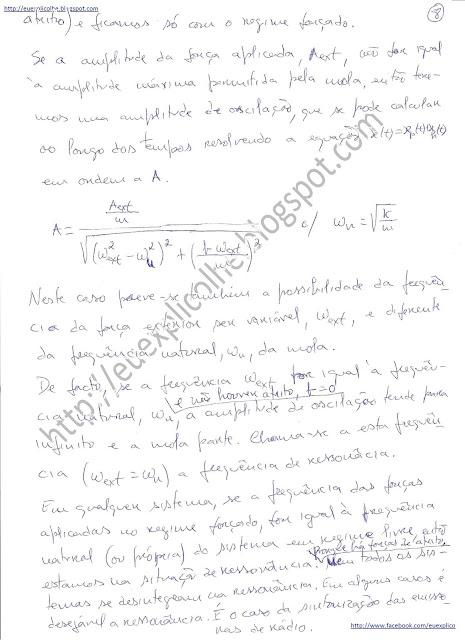 http://euexplicolhe.blogspot.com
8
atrito) e ficamos só com o regime forçado.
Se a amplitude da força aplicada, Aext, não for igual
à amplitude máxima permitida pela mola, então tere-
mos uma amplitude de oscilação, que se pode calcular
ao longo dos tempos resolvendo a equação x(t)=
em ordem a A.
A = (Aext/m) / √((ω²ext - ω²n)² + (b ωext/m)²) c/ ωn = √(k/m)
Neste caso prevê-se também a possibilidade da frequên-
cia da força exterior ser variável, ωext, e diferente
da frequência natural, ωn, da mola.
De facto, se a frequência ωext for igual à frequên-
e não houver atrito, b=0
cia natural, ωn, a amplitude de oscilação tende para
infinito e a mola parte. Chama-se a esta frequên-
cia (ωext = ωn) a frequência de ressonância.
Em qualquer sistema, se a frequência das forças
aplicadas no regime forçado, for igual à frequência
natural (ou própria) do sistema em regime livre, então
porque há forças de atrito.
estamos na situação de ressonância. Nem todos os sis-
temas se desintegram na ressonância. Em alguns casos é
desejável a ressonância. É o caso da sintonização das emisso-
ras de rádio.
http://euexplicolhe.blogspot.com
http://www.facebook.com/euexplico